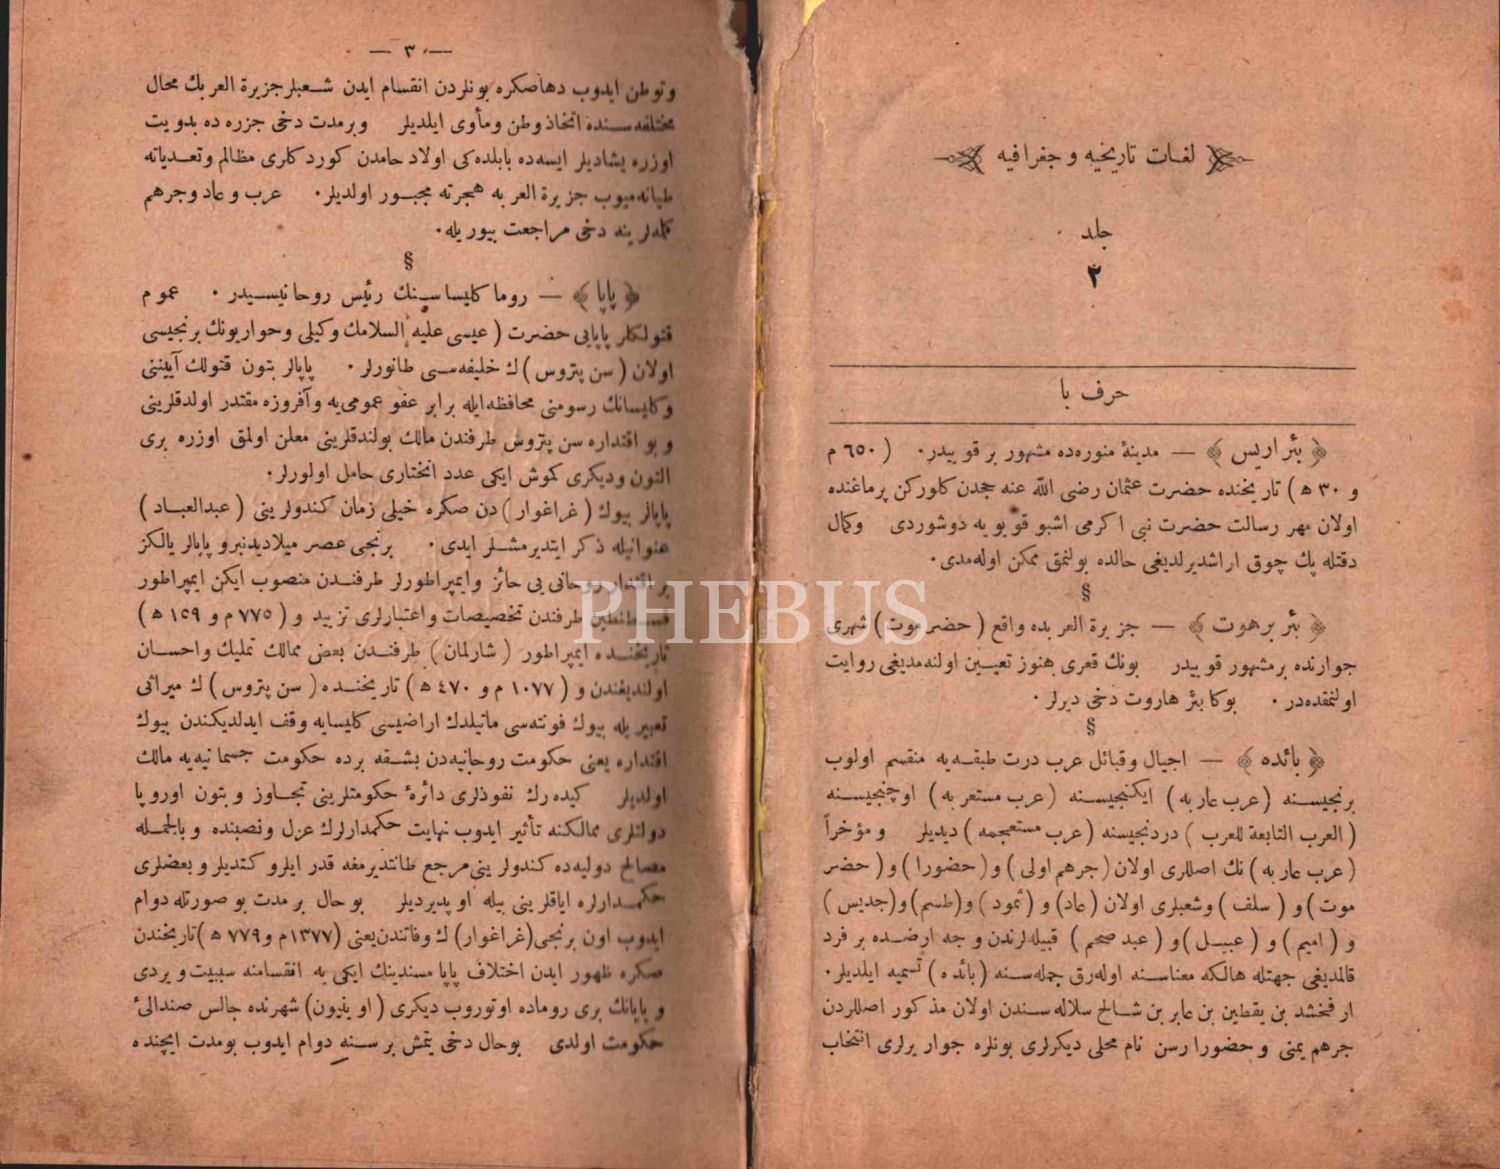 لغات تاریخیه و جغرافیه
جلد
٢
حرف با
﴿ بئر اریس ﴾ — مدینهٔ منوره‌ده مشهور بر قوییدر. ( ٦٥٠ م
و ٣٠ ھ ) تاریخنده حضرت عثمان رضی الله عنه حجدن کلورکن پرماغنده
اولان مهر رسالت حضرت نبی اکرمی اشبو قویویه دوشوردی وکمال
دقتله پك چوق اراشدیرلدیغی حالده بولنمق ممکن اوله‌مدی.
§
﴿ بئر برهوت ﴾ — جزیرة العربده واقع ( حضرموت ) شهری
جوارنده بر مشهور قوییدر بونك قعری هنوز تعیین اولنه‌مدیغی روایت
اولنمقده‌در. بوکا بئر هاروت دخی دیرلر.
§
﴿ بائده ﴾ — اجیال وقبائل عرب درت طبقه‌یه منقسم اولوب
برنجیسنه ( عرب عاربه ) ایکنجیسنه ( عرب مستعربه ) اوچنجیسنه
( العرب التابعة للعرب ) دردنجیسنه ( عرب مستعجمه ) دیدیلر و مؤخراً
( عرب عاربه ) نك اصللری اولان ( جرهم اولی ) و ( حضورا ) و ( حضر
موت ) و ( سلف ) وشعبلری اولان ( عاد ) و ( ثمود ) و ( طسم ) و ( جدیس )
و ( امیم ) و ( عبیل ) و ( عبد ضخم ) قبیله‌لرندن وجه ارضده بر فرد
قالمدیغی جهتله هالکه معناسنه اوله‌رق جمله‌سنه ( بائده ) تسمیه ایلدیلر.
ارفخشد بن یقطین بن عابر بن شالخ سلاله‌سندن اولان مذکور اصللردن
جرهم یمنی و حضورا رسن نام محلی دیکرلری بونلره جوار یرلری انتخاب
— ٣ —
وتوطن ایدوب دها صکره بونلردن انقسام ایدن شعبلر جزیرة العربك محال
مختلفه‌سنده اتخاذ وطن ومأوی ایلدیلر وبرمدت دخی جزره ده بدویت
اوزره یشادیلر ایسه‌ده بابلده‌کی اولاد حامدن کوردکلری مظالم وتعدیاته
طیانه‌میوب جزیرة العربه هجرته مجبور اولدیلر. عرب و عاد وجرهم
کلمه‌لرینه دخی مراجعت بیوریله.
§
﴿ پاپا ﴾ — روما کلیساسینك رئیس روحانیسیدر. عموم
قتولکلر پاپایی حضرت ( عیسی علیه السلامك وکیلی وحواریونك برنجیسی
اولان ( سن پتروس ) ك خلیفه‌سی طانورلر. پاپالر بتون قتولك آییننی
وکلیسانك رسومنی محافظه‌ایله برابر عفو عمومی‌یه وآفروزه مقتدر اولدقلرینی
و بو اقتداره سن پتروس طرفندن مالك بولندقلرینی معلن اولمق اوزره بری
التون ودیکری کموش ایکی عدد انختاری حامل اولورلر.
پاپالر بیوك ( غراغوار ) دن صکره خیلی زمان کندولرینی ( عبدالعباد )
عنوانیله ذکر ایتدیرمشلر ایدی. برنجی عصر میلادیدنبرو پاپالر یالکز
بر اقتدار روحانی یی حائز وایمپراطورلر طرفندن منصوب ایکن ایمپراطور
قسطنطین طرفندن تخصیصات واعتبارلری تزیید و ( ٧٧٥ م و ١٥٩ ھ )
تاریخنده ایمپراطور ( شارلمان ) طرفندن بعض ممالك تملیك واحسان
اولندیغندن و ( ١٠٧٧ م و ٤٧٠ ھ ) تاریخنده ( سن پتروس ) ك میراثی
تعبیریله بیوك قونته‌سی ماتیلدك اراضیسی کلیسایه وقف ایدلدیکندن بیوك
اقتداره یعنی حکومت روحانیه‌دن بشقه برده حکومت جسمانیه‌یه مالك
اولدیلر کیده‌رك نفوذلری دائرهٔ حکومتلرینی تجاوز و بتون اوروپا
دولتلری ممالکنه تأثیر ایدوب نهایت حکمدارلرك عزل ونصبنده و بالجمله
مصالح دولیه‌ده کندولرینی مرجع طانتدیرمغه قدر ایلرو کتدیلر و بعضلری
حکمدارلره ایاقلرینی بیله اوپدیردیلر بوحال بر مدت بو صورتله دوام
ایدوب اون برنجی ( غراغوار ) ك وفاتندن‌یعنی ( ١٣٧٧ م و ٧٧٩ ھ ) تاریخندن
صکره ظهور ایدن اختلاف پاپا مسندینك ایکی یه انقسامنه سببیت ویردی
و پاپانك بری روماده اوتوروب دیکری ( اوینیون ) شهرنده جالس صندالیٔ
حکومت اولدی بوحال دخی یتمش بر سنه دوام ایدوب بومدت ایچنده
PHEBUS